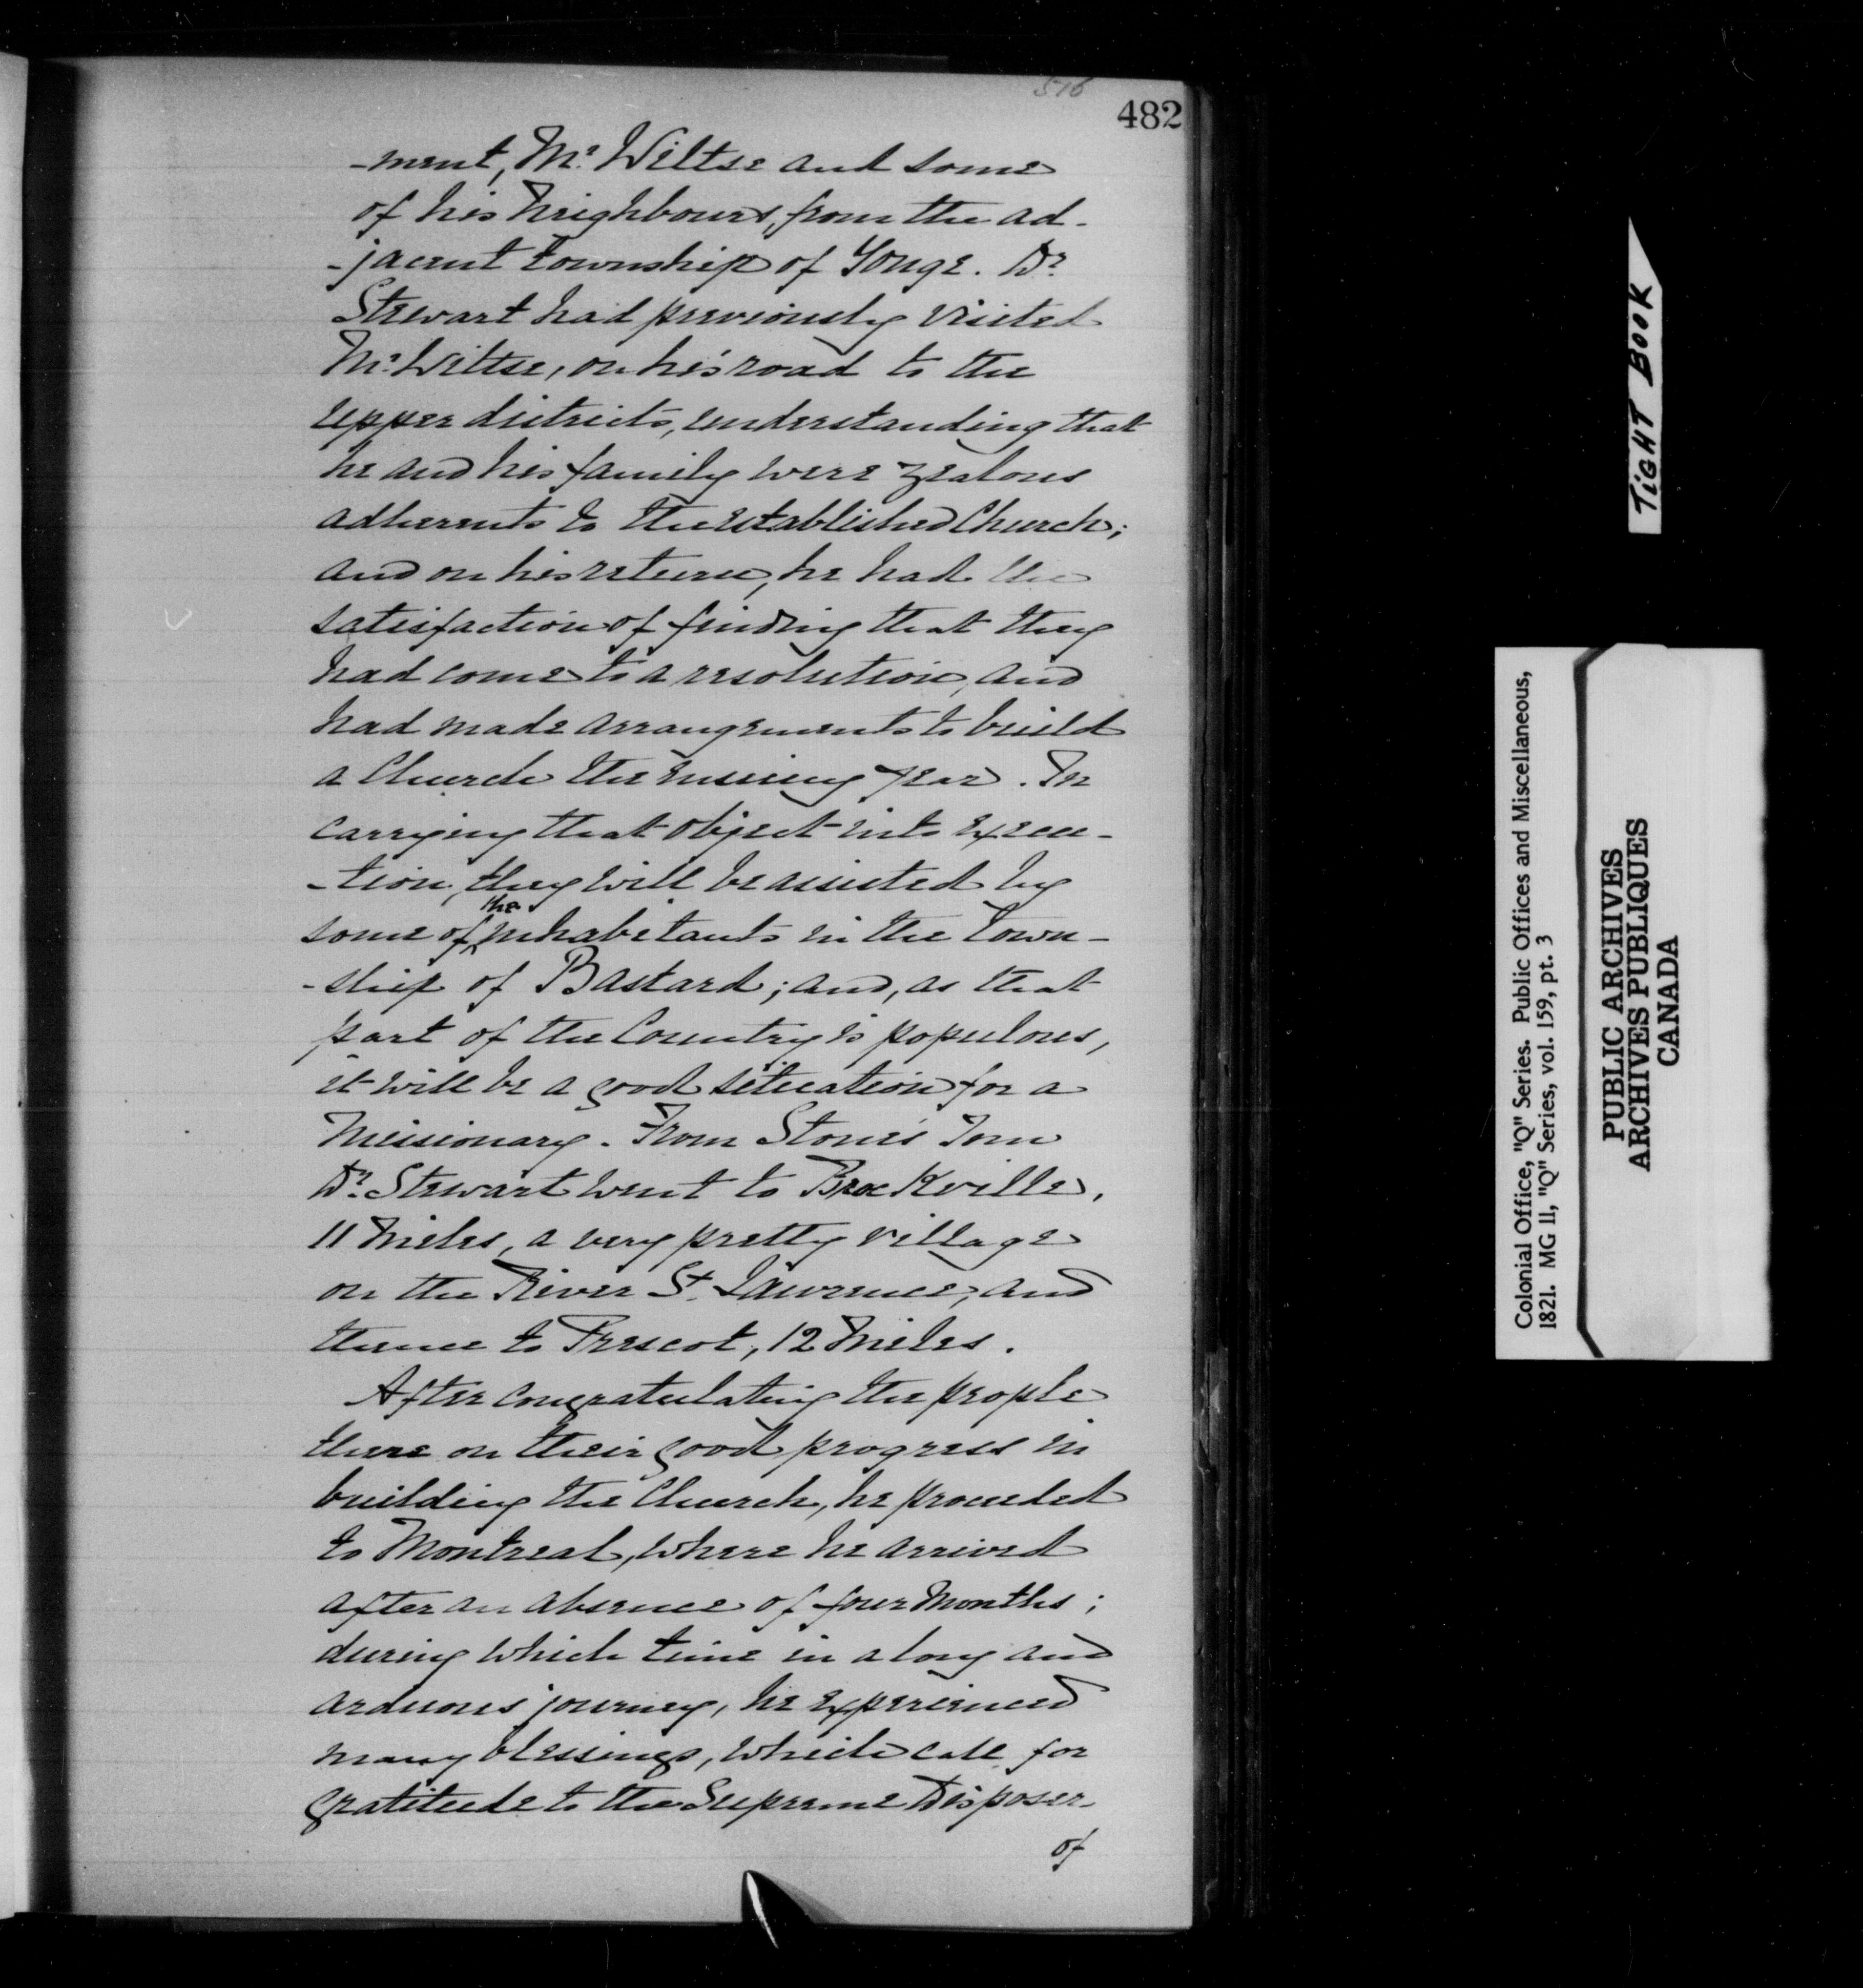 516
482
-ment, Mr. Wiltse and some
of his neighbours, from the ad-
-jacent township of Yonge. Dr.
Stewart had previously visited
Mr. Wiltse, on his road to the
upper districts, understanding that
he and his family were zealous
adherents to the established Church;
and on his return, he had the
satisfaction of finding that they
had come to a resolution, and
had made arrangements to build
a Church the ensuing year. In
carrying that object into execu-
-tion, they will be assisted by
some of the inhabitants in the town-
-ship of Bastard; and, as that
part of the Country is populous,
it will be a good situation for a
Missionary. From Stone's Inn
Dr. Stewart went to Brockville,
11 miles, a very pretty village
on the River St. Lawrence, and
thence to Prescot, 12 miles.
After congratulating the people
there on their good progress in
building the Church, he proceeded
to Montreal, where he arrived
after an absence of four months;
during which time in a long and
arduous journey, he experienced
many blessings, which call for
gratitude to the Supreme Disposer
of
TIGHT BOOK
Colonial Office, "Q" Series. Public Offices and Miscellaneous,
1821. MG 11, "Q" Series, vol. 159, pt. 3
PUBLIC ARCHIVES
ARCHIVES PUBLIQUES
CANADA